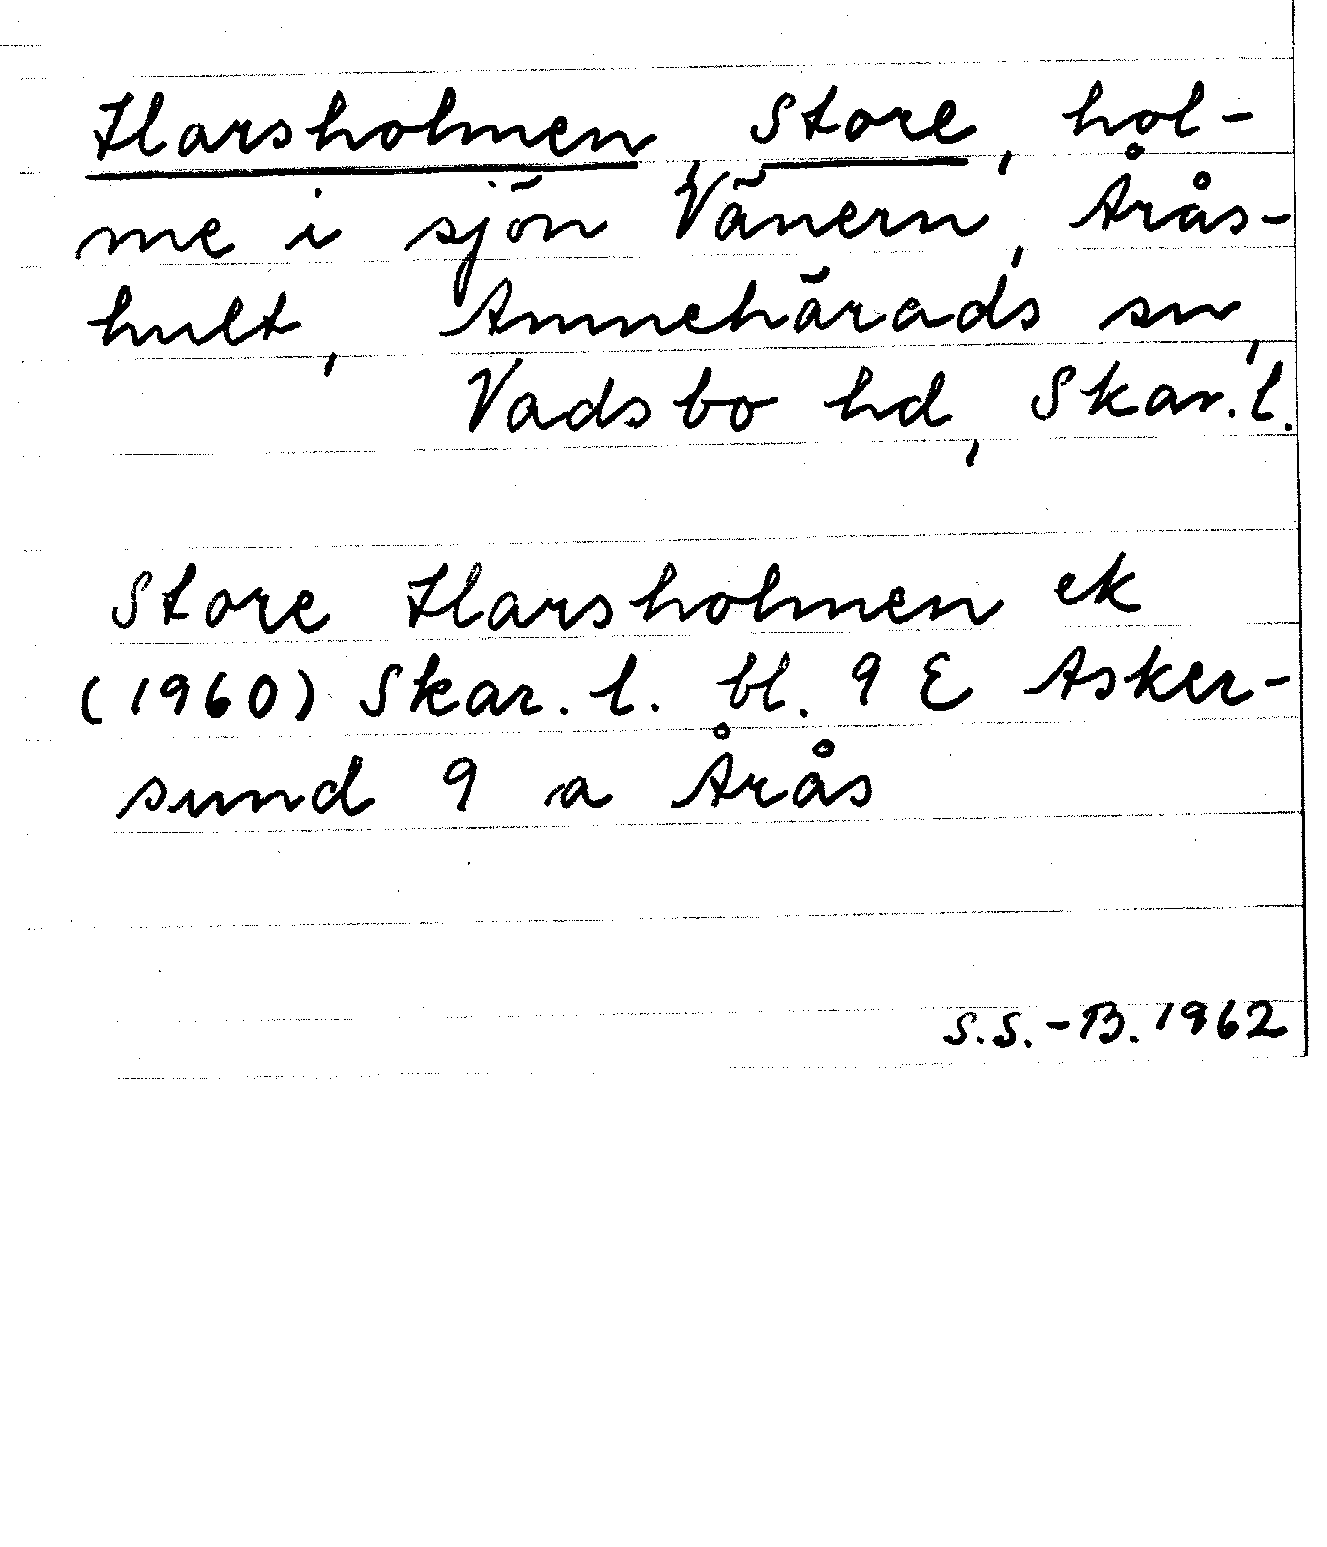 Harsholmen, Store, hol-
me i sjön Vänern, Årås-
hult, Amnehärads sn,
Vadsbo hd, Skar. l.
Store Harsholmen ek
(1960) Skar. l. bl. 9 E Asker-
sund 9 a Årås
S.S.-B. 1962